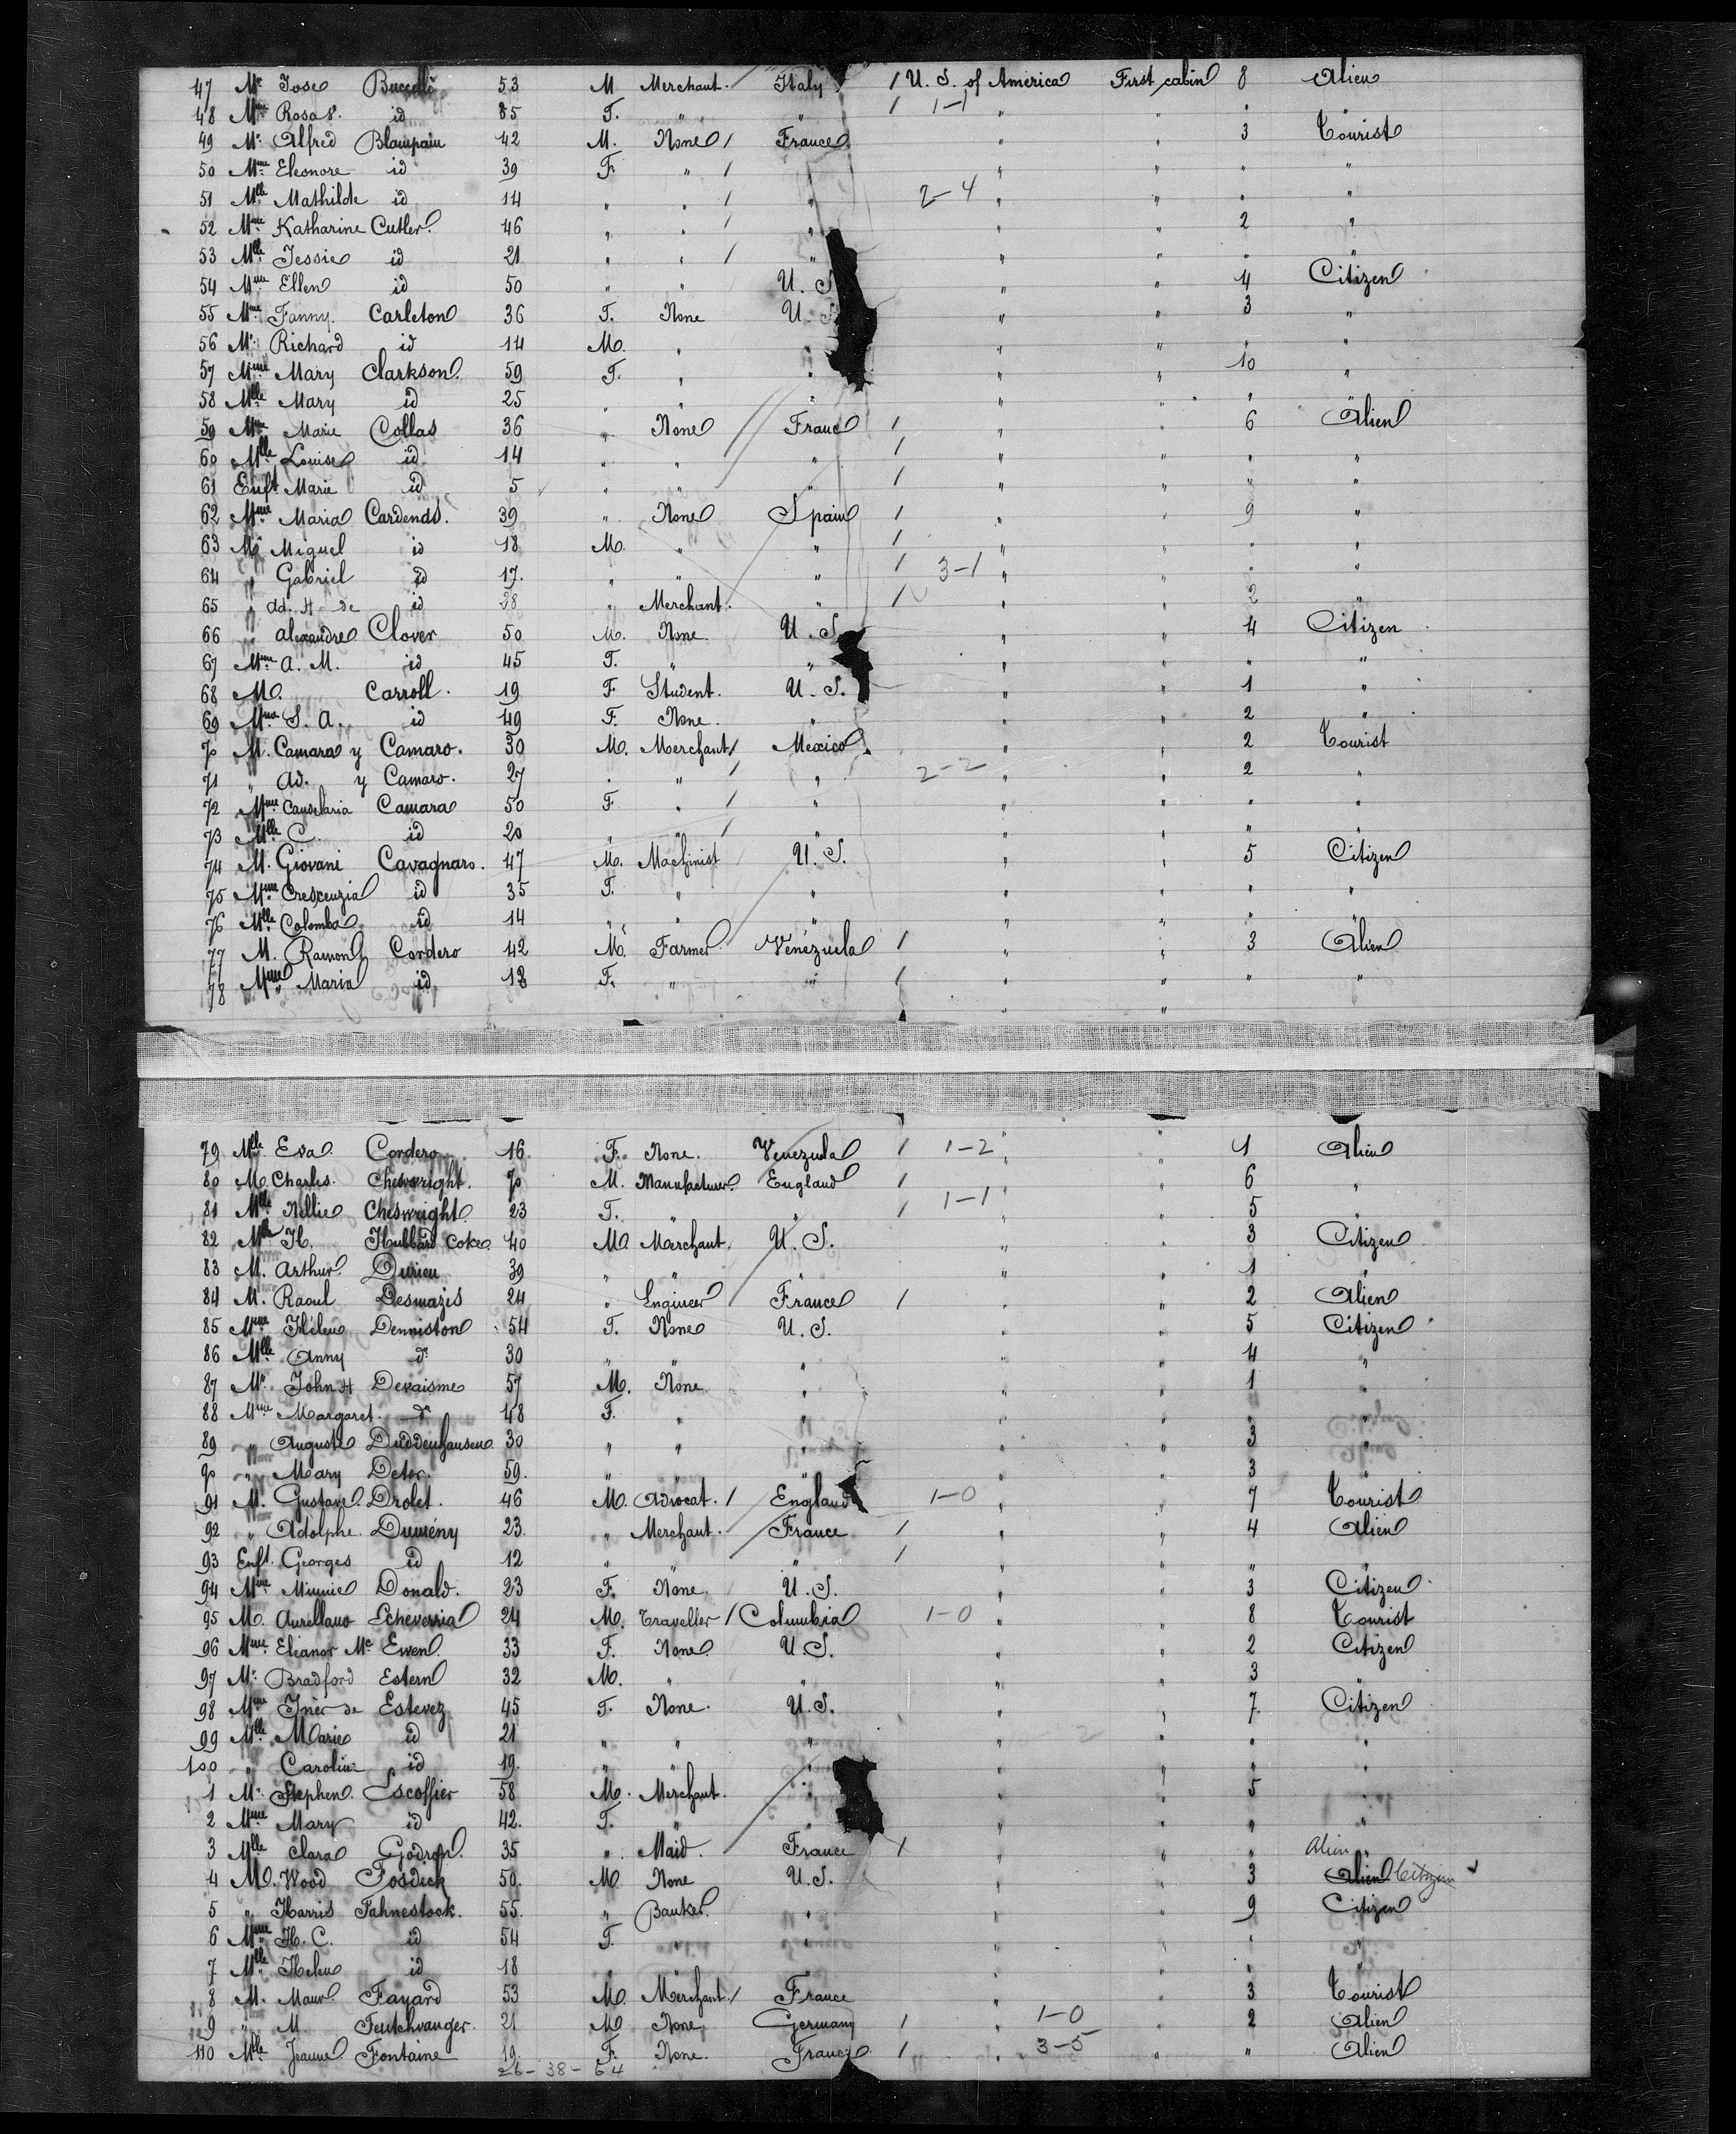 47 Mr Jose Buccelli 53 M Merchant. Italy / U. S. of America First cabin 8 Alien
48 Mme Rosa S. id 85 F. " " / 1-1 " " "
49 Mr Alfred Blampain 42 M. None / France " " 3 Tourist
50 Mme Eleonore id 39 F. " / " " " "
51 Mlle Mathilde id 14 " " / " 2-4 " " " "
52 Mme Katharine Cutler. 46 " " / " " " 2 "
53 Mlle Jessie id 21 " " / " " " " "
54 Mme Ellen id 50 " " U. S " " 4 Citizen
55 Mme Fanny. Carleton 36 F. None U. S " " 3 "
56 Mr Richard id 14 M. " " " " " "
57 Mme Mary Clarkson. 59 F. " " " " 10 "
58 Mlle Mary id 25 " " " " " " "
59 Mme Marie Collas 36 " None Franc / " " 6 Alien
60 Mlle Louise id 14 " " " / " " " "
61 Enft Marie id 5 " " " / " " " "
62 Mme Maria Cardends. 39 " None Spain / " " 9 "
63 Mr Miguel id 18 M. " " / " " " "
64 " Gabriel id 17. " " " / 3-1 " " " "
65 " Ad. H de id 28 " Merchant. " / " " 2 "
66 " Alexandre Clover 50 M. None. U. S. " " 4 Citizen
67 Mme A. M. id 45 F. " " " " " "
68 M. Carroll. 19 F. Student. U. S. " " 1 "
69 Mme S. A. id 49 F. None. " " " 2 "
70 M. Camara y Camaro. 30 M. Merchant / Mexico " " 2 Tourist
71 " Ad. y Camaro. 27 " " / " 2-2 " " 2 "
72 Mme Canselaria Camara 50 F " / " " " " "
73 Mlle C. id 20 " " / " " " " "
74 M. Giovani Cavagnaro. 47 M. Machinist U. S. " " 5 Citizen
75 Mme Crescenzia id 35 F. " " " " " "
76 Mlle Colomba id 14 " " " " " " "
77 M. Ramon Cordero 42 M. Farmer Venézuela / " " 3 Alien
78 Mme Maria id 18 F. " " / " " " "
79 Mlle Eva Cordero 16 F. None. Venezuela / 1-2 " " 1 Alien
80 M. Charles. Cheswright. 70 M. Manufacturer England / " " 6 "
81 Mlle Nellie Cheswright 23 F. " " / 1-1 " " 5 "
82 Mlle H. Hubbard Coke 40 M. Merchant. U. S. " " 3 Citizen
83 M. Arthur. Durieu 39 " " " " " 1 "
84 M. Raoul Desmazis 24 " Engineer France / " " 2 Alien
85 Mme Hélen Denniston 54 F. None U. S. " " 5 Citizen
86 Mlle Anny do 30 " " " " " 4 "
87 Mr. John H Devaisme 57 M. None. " " " 1 "
88 Mme Margaret. do 48 F. " " " " " "
89 " Auguste Duddenhausen 30 " " " " " 3 "
90 " Mary Detor. 59. " " " " " 3 "
91 M. Gustave. Drolet. 46 M. Advocat. / England 1-0 " " 7 Tourist
92 " Adolphe. Dumény 23. " Merchant. France / " " 4 Alien
93 Enft. Georges id 12 " " " / " " " "
94 Mme Minnie Donald. 23 F. None. U. S. " " 3 Citizen
95 M. Aurellano Echeverria 24 M. Traveller / Columbia 1-0 " " 8 Tourist
96 Mme Eléanor Mc Ewen. 33 F. None U. S. " " 2 Citizen
97 Mr. Bradford Estern 32 M. " " " " 3 "
98 Mme Inér de Estevez 45 F. None. U. S. " " 7. Citizen
99 Mlle Marie id 21 " " " " " " "
100 " Caroline id 19. " " " " " " "
1 Mr. Stephen. Escoffier 58 M. Merchant. " " " 5 "
2 Mme Mary id 42. F. " " " " "
3 Mlle Clara Godron. 35 " Maid. France / " " " Alien
4 M. Wood Fosdick 50. M. None U. S. " " 3 Alien Citizen
5 " Harris Fahnestock. 55. " Banker. " " " 9 Citizen
6 Mme H. C. id 54 F. " " " " " "
7 Mlle Helen id 18 " " " " " " "
8 M. Maur. Fayard 53 M. Merchant. / France " " 3 Tourist
9 " M. Feutchvanger. 21 M. None Germany / " 1-0 " 2 Alien
110 Mlle Jeanne Fontaine 19. F. None. France / " 3-5 " " Alien
26 - 38 - 64